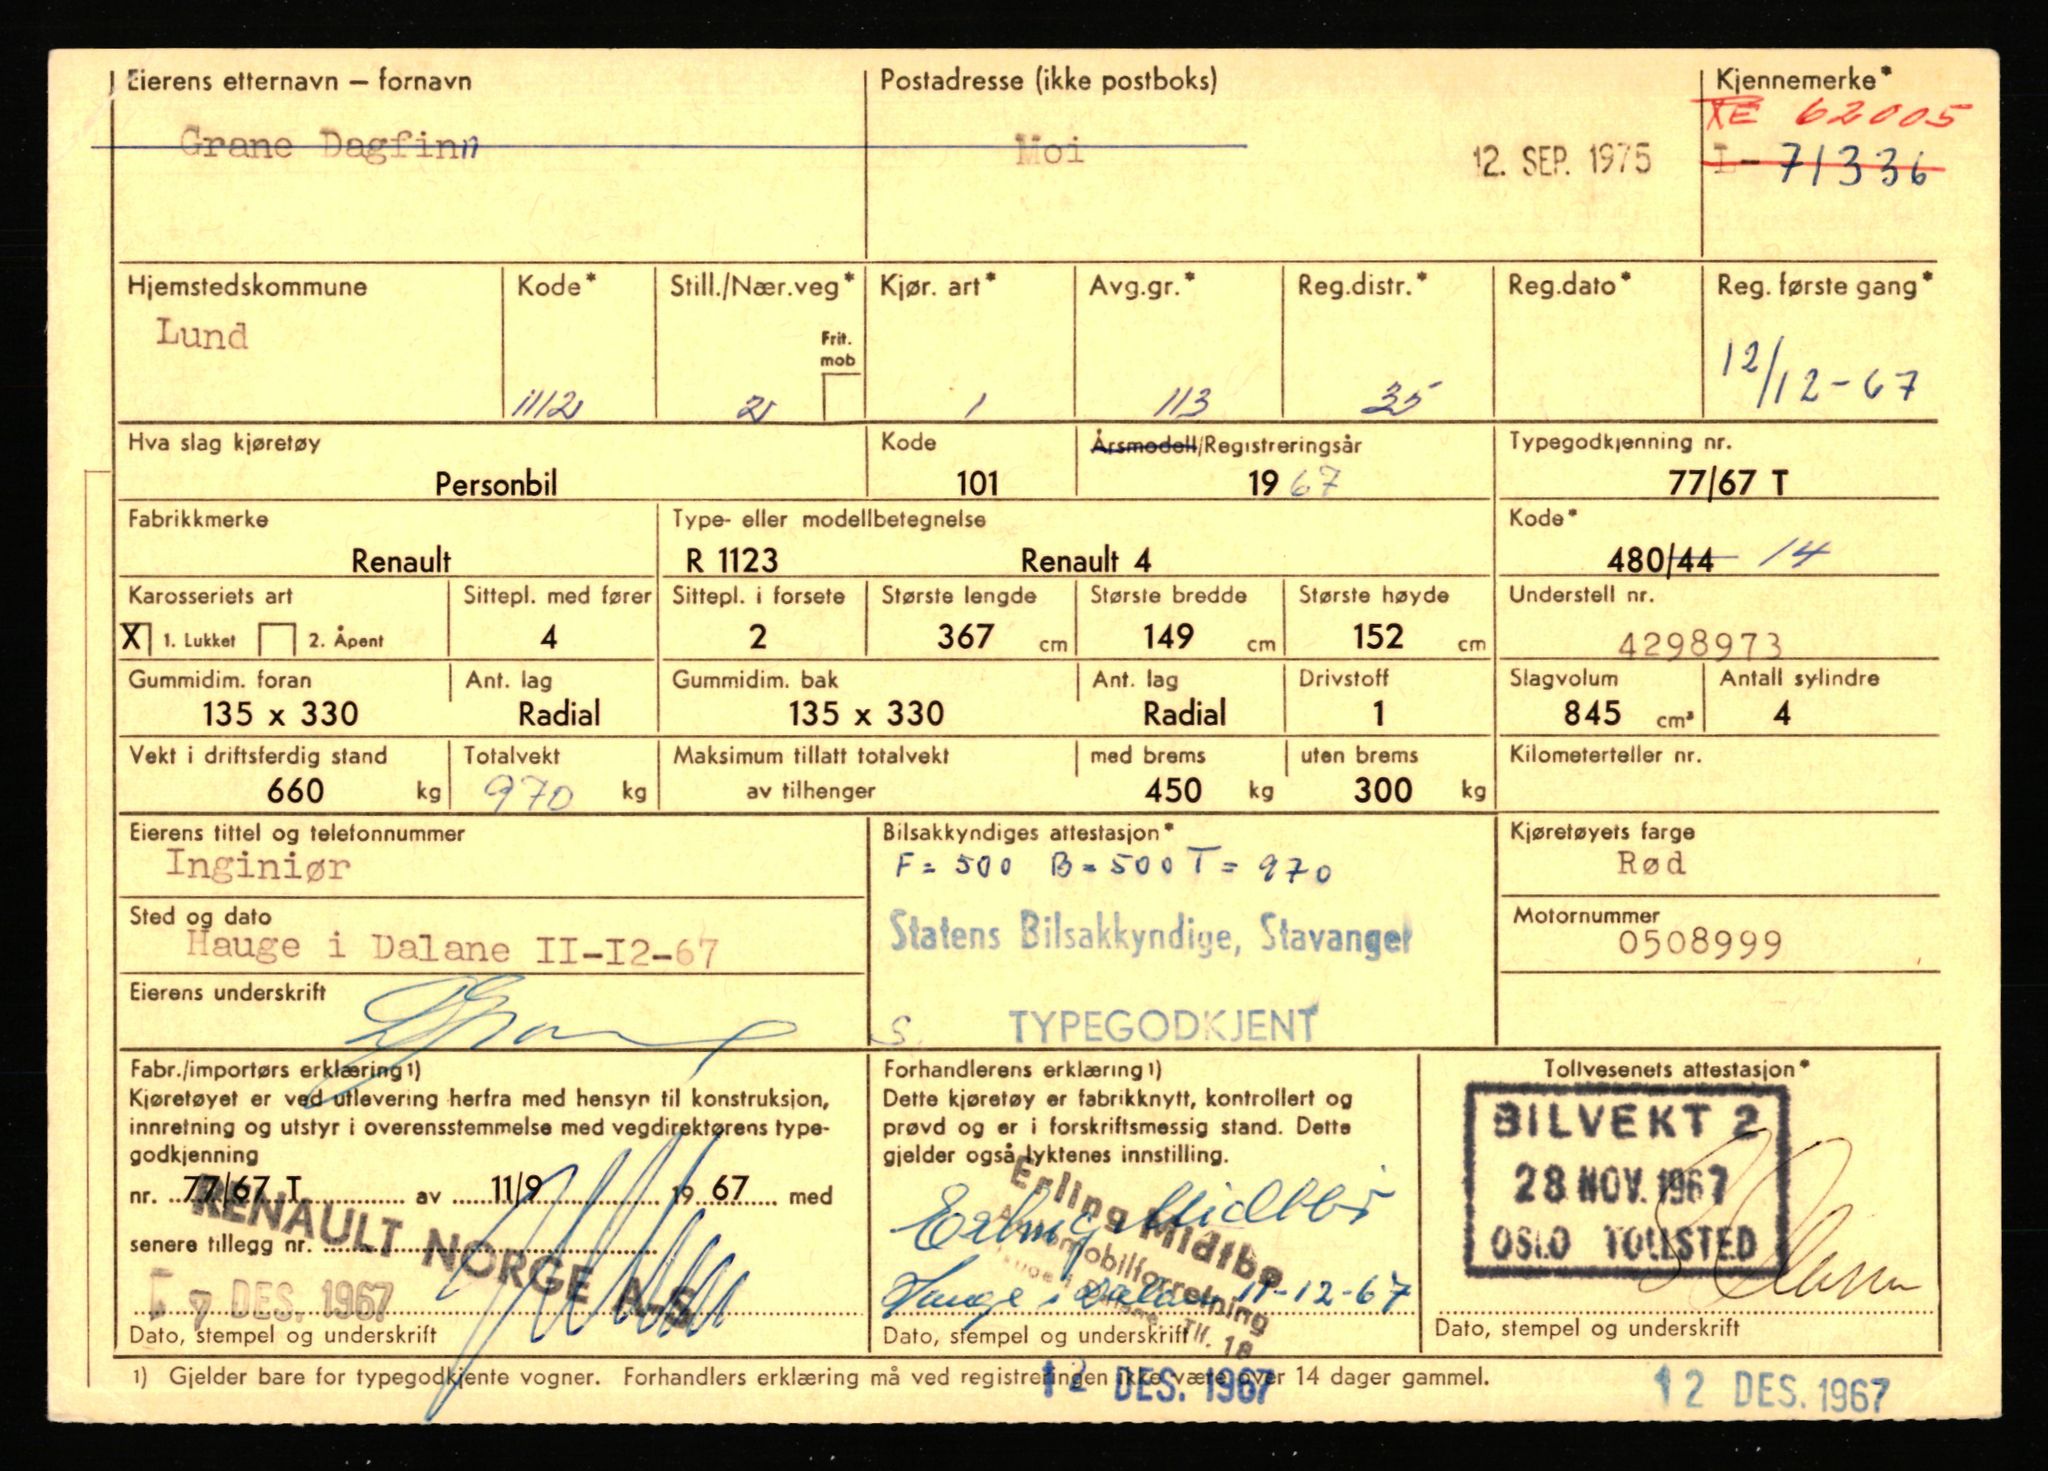 Eierens etternavn — fornavn
Postadresse (ikke postboks)
Kjennemerke*
Grane Dagfinn
Moi
12. SEP. 1975
62005
L - 71336
Hjemstedskommune
Kode*
Still./Nær.veg*
Kjør. art*
Avg.gr.*
Reg.distr.*
Reg.dato*
Reg. første gang*
Lund
Frit. mob
1112
2
1
113
35
12/12-67
Hva slag kjøretøy
Kode
Årsmodell/Registreringsår
Typegodkjenning nr.
Personbil
101
1967
77/67 T
Fabrikkmerke
Type- eller modellbetegnelse
Kode*
Renault
R 1123
Renault 4
480/44 14
Karosseriets art
Sittepl. med fører
Sittepl. i forsete
Største lengde
Største bredde
Største høyde
Understell nr.
X 1. Lukket 2. Åpent
4
2
367 cm
149 cm
152 cm
4298973
Gummidim. foran
Ant. lag
Gummidim. bak
Ant. lag
Drivstoff
Slagvolum
Antall sylindre
135 x 330
Radial
135 x 330
Radial
1
845 cm³
4
Vekt i driftsferdig stand
Totalvekt
Maksimum tillatt totalvekt
med brems
uten brems
Kilometerteller nr.
660 kg
970 kg
av tilhenger
450 kg
300 kg
Eierens tittel og telefonnummer
Bilsakkyndiges attestasjon*
Kjøretøyets farge
Inginiør
F = 500 B = 500 T = 970
Rød
Sted og dato
Statens Bilsakkyndige, Stavanger
Motornummer
Hauge i Dalane II-I2-67
0508999
Eierens underskrift
S.
TYPEGODKJENT
Fabr./importørs erklæring 1)
Kjøretøyet er ved utlevering herfra med hensyn til konstruksjon,
innretning og utstyr i overensstemmelse med vegdirektørens type-
godkjenning
nr. 77/67 T av 11/9 1967 med
senere tillegg nr.
RENAULT NORGE A-S
7 DES. 1967
Dato, stempel og underskrift
Forhandlerens erklæring 1)
Dette kjøretøy er fabrikknytt, kontrollert og
prøvd og er i forskriftsmessig stand. Dette
gjelder også lyktenes innstilling.
Erling Midtbø
Automobilforretning
Hauge i Dalane - Tlf. 18
Erling Midtbø
Hauge i Dalane 11-12-67
Dato, stempel og underskrift
Tollvesenets attestasjon*
BILVEKT 2
28 NOV. 1967
OSLO TOLLSTED
Dato, stempel og underskrift
1) Gjelder bare for typegodkjente vogner. Forhandlers erklæring må ved registreringen ikke være over 14 dager gammel.
12 DES. 1967
12 DES. 1967